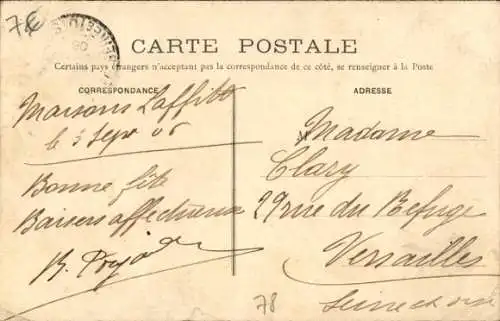 7€
CARTE POSTALE
Certains pays étrangers n'acceptant pas la correspondance de ce côté, se renseigner à la Poste
CORRESPONDANCE
ADRESSE
Maisons Laffitte
le 3 Sept 06
Bonne fête
Baisers affectueux
Madame
Clary
29 rue du Refuge
Versailles
Seine et Oise
78